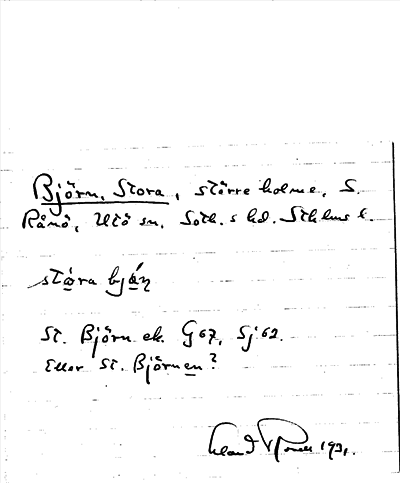 Björn, Stora, större holme, S.
Rånö, Utö sn, Soth.s hd. Sthlms l.
stora
St. Björn ek. G67, Sj62.
Eller St. Björnen?
1931.